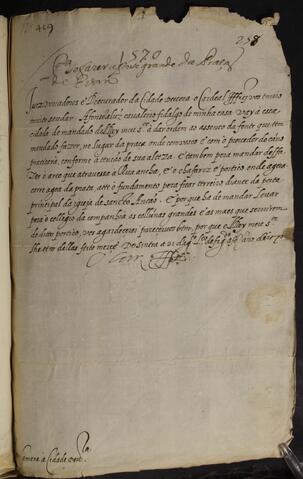 nº 449
258
1570
Sobre fazer a fonte grande da Praça
de
Juiz Vereadores e Procurador da Cidade devora o Cardeal Iffte vos envio
muito saudar. Afonso alvrez cavaleiro fidalgo de minha casa vay a essa
cidade de mandado delRey meu sõr a dar ordem ao assento da fonte que tem
mandado fazer, no lugar da praça onde
conforme a de sua alteza. e também pera mandar desfa
zer o arco que atravessa a Rua ancha, e o chafariz e portico onde agora
corre agoa da prata, até o fundamento pera ficar terreiro diante da porta
principal da igreja de sancto Antão. e por que ha de mandar levar
pera o collegio da companhia as collunas grandes e as mais que serviram
do dito portico, vos agardecerei parecervos bem, por que elRey meu sõr
lhe tem dellas feito mercê. De sintra a 21 dag.to
Pera a Cidade devora